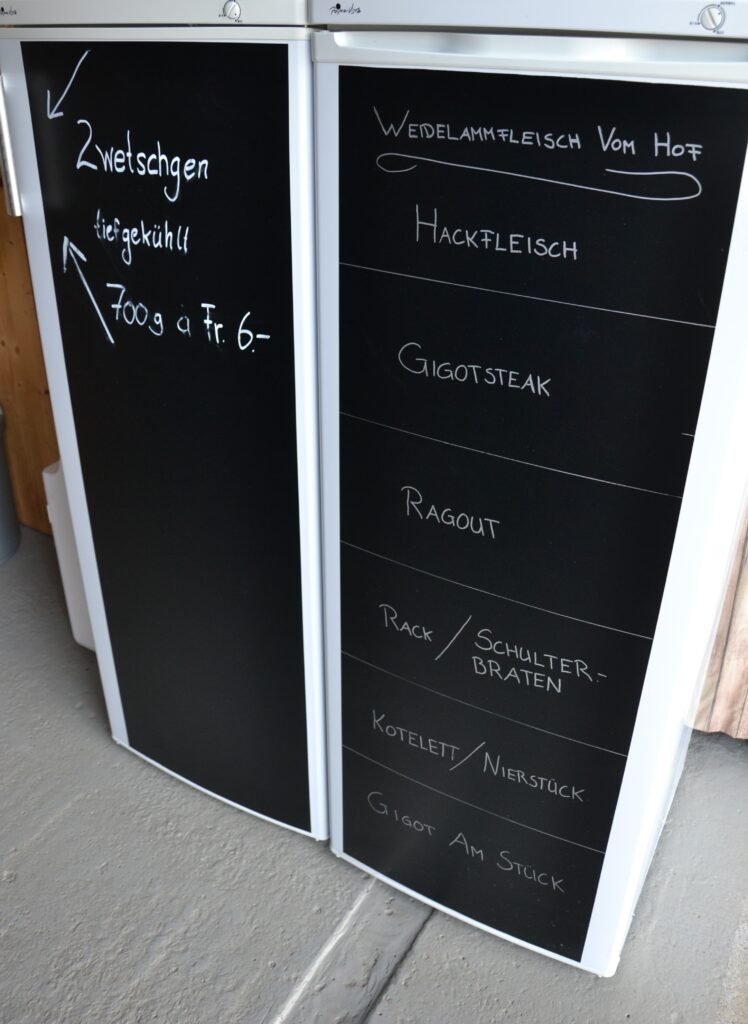 Zwetschgen
tiefgekühlt
700g à Fr. 6.-
WEIDELAMMFLEISCH VOM HOF
HACKFLEISCH
GIGOTSTEAK
RAGOUT
RACK / SCHULTER-
BRATEN
KOTELETT / NIERSTÜCK
GIGOT AM STÜCK